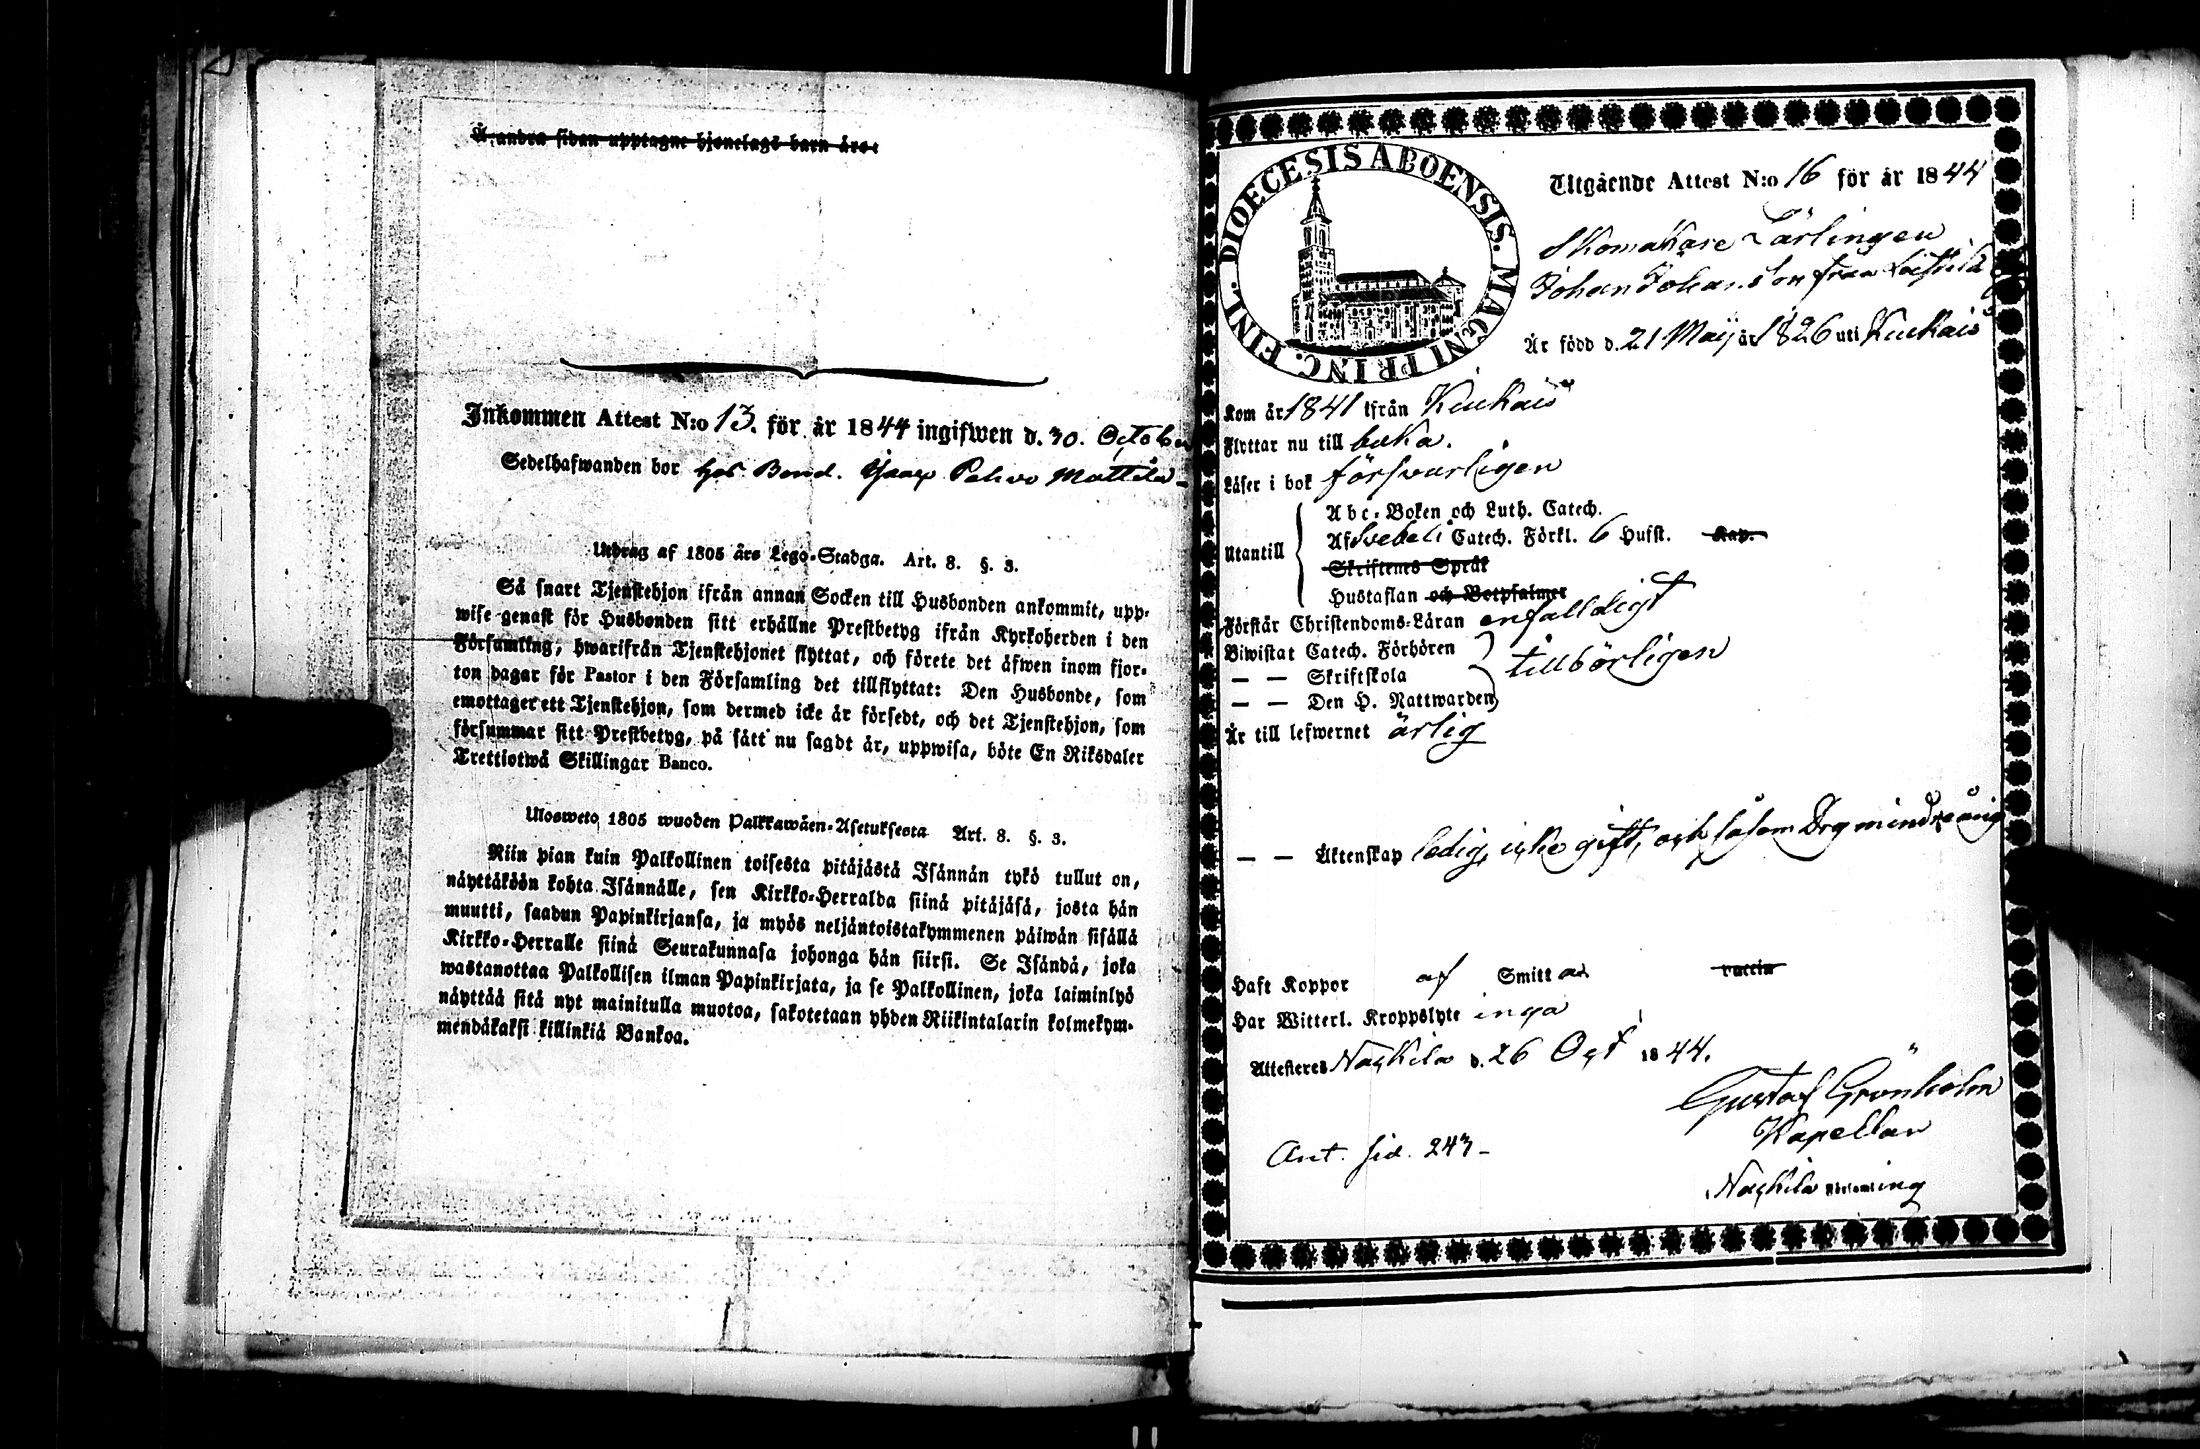 Å andra sidan upptagne hjonelags barn äro:
Inkommen Attest N:o 13. för år 1844 ingifwen d. 30. October
Sedelhafwanden bor hos Bond.
Utdrag af 1805 års Lego-Stadga. Art. 8. §. 3.
Så snart Tjenstehjon ifrån annan Socken till Husbonden ankommit, upp-
wise genast för Husbonden sitt erhållne Prestbetyg ifrån Kyrkoherden i den
Församling, hwarifrån Tjenstehjonet flyttat, och förete det äfwen inom fjor-
ton dagar för Pastor i den Församling det tillflyttat: Den Husbonde, som
emottager ett Tjenstehjon, som dermed icke är försedt, och det Tjenstehjon, som
försummar sitt Prestbetyg, på sätt nu sagdt är, uppwisa, böte En Riksdaler
Trettiotwå Skillingar Banco.
Ulosweto 1805 wuoden Palkkawäen-Asetuksesta Art. 8. §. 3.
Niin pian kuin Palkollinen toisesta pitäjästä Isännän tykö tullut on,
näyttäköön kohta Isännälle, sen Kirkko-Herralda siinä pitäjäsä, josta hän
muutti, saadun Papinkirjansa, ja myös neljäntoistakymmenen päiwän sisällä
Kirkko-Herralle siinä Seurakunnasa johonga hän siirsi. Se Isändä, joka
wastanottaa Palkollisen ilman Papinkirjata, ja se Palkollinen, joka laiminlyö
näyttää sitä nyt mainitulla muotoa, sakotetaan yhden Riikintalarin kolmekym-
mendäkaksi killinkiä Bankoa.
DIOECESIS ABOENSIS. MAGNI PRINC. FINL.
Utgående Attest N:o 16 för år 1844
Skomakare Lärlingen
Johan Johansson från
Är född d. 21 Maij år 1826 uti Kiukais
Kom år 1841 ifrån Kiukais
Flyttar nu till
Läser i bok försvarligen
Utantill
Abc-Boken och Luth. Catech.
Af Svebeli Catech. Förkl. 6 Hufst. Kap.
Skriftenes Språk
Hustaflan och Botpsalmer
Förstår Christendoms-Läran enfalldigt
Biwistat Catech. Förhören
— — Skriftskola tillbörligen
— — Den H. Nattwarden
Är till lefwernet ärlig
— — Äktenskap ledig, icke gift, och såsom Dreng minderårig
Haft Koppor af Smitta vaccin
Har Witterl. Kroppslyte inga
Attesteres Nackila d. 26 Oct 1844.
Gustaf Grönholm
Kapellan
Nackila Församling
Ant. sid. 243